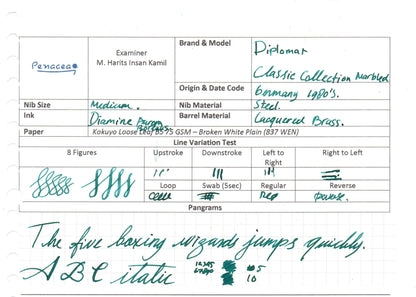 Panacea
Examiner
M. Harits Insan Kamil
Brand & Model
Diplomat
Classic Collection Marbled
Origin & Date Code
Germany 1980's.
Nib Size
Medium.
Nib Material
Steel.
Ink
Diamine
Barrel Material
Lacquered Brass.
Paper
Kokuyo Loose Leaf B5 75 GSM – Broken White Plain (837 WEN)
Line Variation Test
8 Figures
Upstroke
Downstroke
Left to Right
Right to Left
Loop
Swab (5sec)
Regular
Reverse
Reg
Reverse.
Pangrams
The five boxing wizards jumps quickly.
ABC italic
12345
67890
5
10